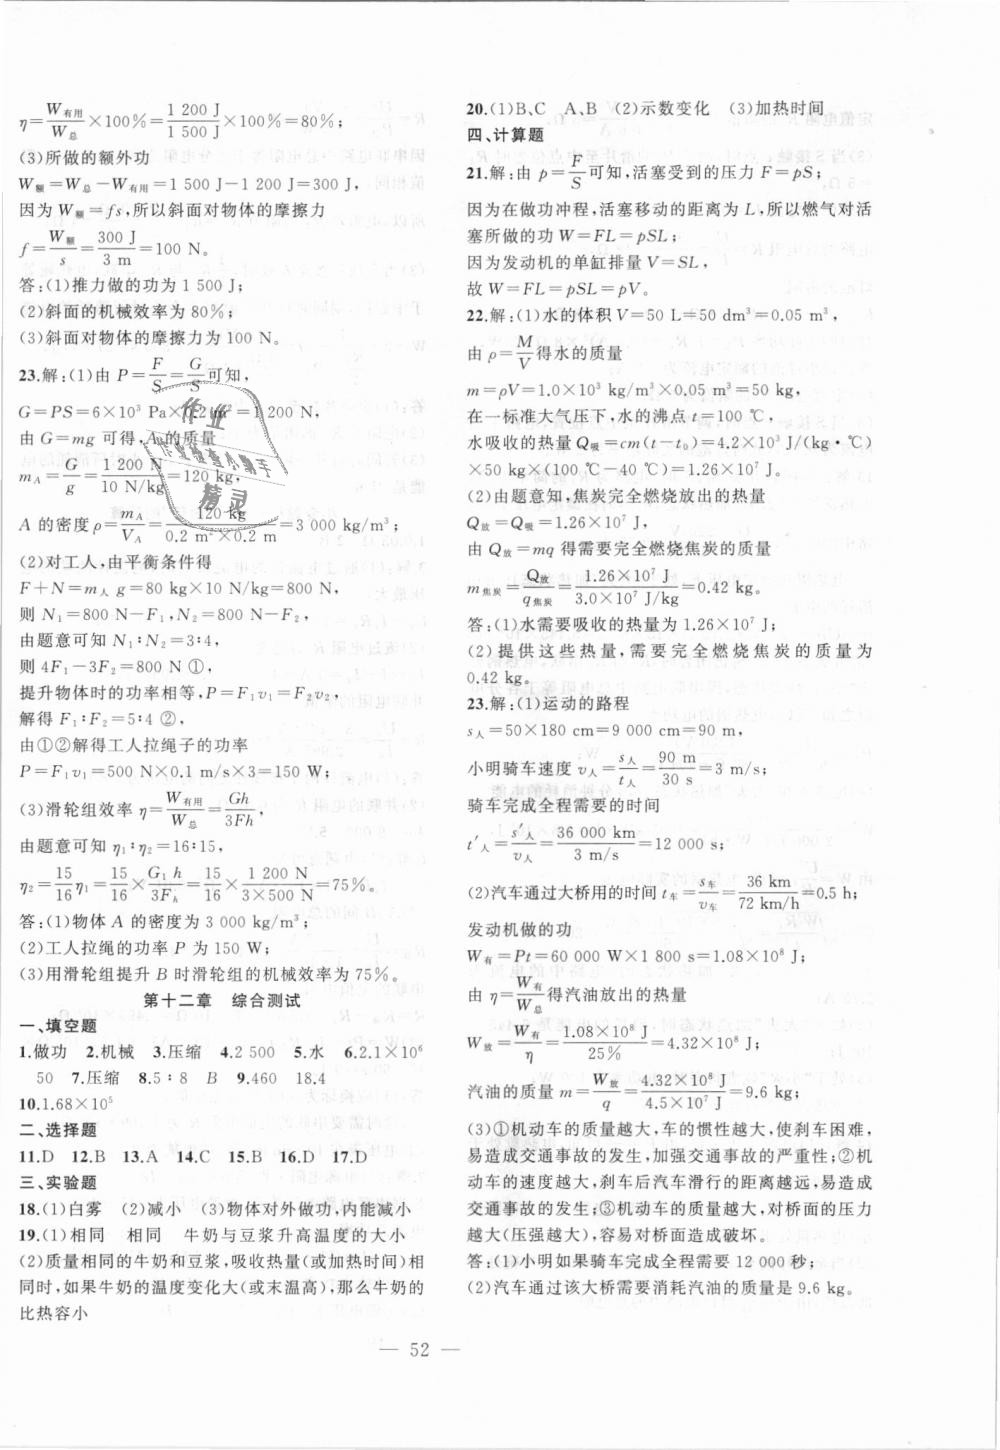 η=W有用/W总×100%=1 200 J/1 500 J×100%=80%;
(3)所做的额外功
W额=W总-W有用=1 500 J-1 200 J=300 J,
因为 W额=fs,所以斜面对物体的摩擦力
f=W额/s=300 J/3 m=100 N。
答:(1)推力做的功为 1 500 J;
(2)斜面的机械效率为 80%;
(3)斜面对物体的摩擦力为 100 N。
23.解:(1)由 P=F/S=G/S可知,
G=PS=6×10³ Pa×0.2 m²=1 200 N,
由 G=mg 可得,A 的质量
mA=G/g=1 200 N/10 N/kg=120 kg,
A 的密度 ρ=mA/VA=120 kg/0.2 m²×0.2 m=3 000 kg/m³;
(2)对工人,由平衡条件得
F+N=m人 g=80 kg×10 N/kg=800 N,
则 N₁=800 N-F₁,N₂=800 N-F₂,
由题意可知 N₁:N₂=3:4,
则 4F₁-3F₂=800 N ①,
提升物体时的功率相等,P=F₁v₁=F₂v₂,
解得 F₁:F₂=5:4 ②,
由①②解得工人拉绳子的功率
P=F₁v₁=500 N×0.1 m/s×3=150 W;
(3)滑轮组效率 η=W有用/W总=Gh/3Fh,
由题意可知 η₁:η₂=16:15,
η₂=15/16η₁=15/16×G₁h/3Fh=15/16×1 200 N/3×500 N=75%。
答:(1)物体 A 的密度为 3 000 kg/m³;
(2)工人拉绳的功率 P 为 150 W;
(3)用滑轮组提升 B 时滑轮组的机械效率为 75%。
第十二章 综合测试
一、填空题
1.做功 2.机械 3.压缩 4.2 500 5.水 6.2.1×10⁶
50 7.压缩 8.5:8 B 9.460 18.4
10.1.68×10⁵
二、选择题
11.D 12.B 13.A 14.C 15.B 16.D 17.D
三、实验题
18.(1)白雾 (2)减小 (3)物体对外做功,内能减小
19.(1)相同 相同 牛奶与豆浆升高温度的大小
(2)质量相同的牛奶和豆浆,吸收热量(或加热时间)相
同时,如果牛奶的温度变化大(或末温高),那么牛奶的
比热容小
20.(1)B、C A、B (2)示数变化 (3)加热时间
四、计算题
21.解:由 p=F/S可知,活塞受到的压力 F=pS;
因为在做功冲程,活塞移动的距离为 L,所以燃气对活
塞所做的功 W=FL=pSL;
因为发动机的单缸排量 V=SL,
故 W=FL=pSL=pV。
22.解:(1)水的体积 V=50 L=50 dm³=0.05 m³,
由 ρ=M/V得水的质量
m=ρV=1.0×10³ kg/m³×0.05 m³=50 kg,
在一标准大气压下,水的沸点 t=100 ℃,
水吸收的热量 Q吸=cm(t-t₀)=4.2×10³ J/(kg·℃)
×50 kg×(100 ℃-40 ℃)=1.26×10⁷ J。
(2)由题意知,焦炭完全燃烧放出的热量
Q放=Q吸=1.26×10⁷ J,
由 Q放=mq 得需要完全燃烧焦炭的质量
m焦炭=Q放/q焦炭=1.26×10⁷ J/3.0×10⁷ J/kg=0.42 kg。
答:(1)水需要吸收的热量为 1.26×10⁷ J;
(2)提供这些热量,需要完全燃烧焦炭的质量为
0.42 kg。
23.解:(1)运动的路程
s人=50×180 cm=9 000 cm=90 m,
小明骑车速度 v人=s人/t人=90 m/30 s=3 m/s,
骑车完成全程需要的时间
t′人=s′人/v人=36 000 km/3 m/s=12 000 s;
(2)汽车通过大桥用的时间 t车=s车/v车=36 km/72 km/h=0.5 h;
发动机做的功
W有=Pt=60 000 W×1 800 s=1.08×10⁸ J;
由 η=W有/W总得汽油放出的热量
W放=W有/η=1.08×10⁸ J/25%=4.32×10⁸ J;
汽油的质量 m=W放/q=4.32×10⁸ J/4.5×10⁷ J=9.6 kg;
(3)①机动车的质量越大,车的惯性越大,使刹车困难,
易造成交通事故的发生,加强交通事故的严重性;②机
动车的速度越大,刹车后汽车滑行的距离越远,易造成
交通事故的发生;③机动车的质量越大,对桥面的压力
越大(压强越大),容易对桥面造成破坏。
答:(1)小明如果骑车完成全程需要 12 000 秒;
(2)汽车通过该大桥需要消耗汽油的质量是 9.6 kg。
— 52 —
作业
精灵